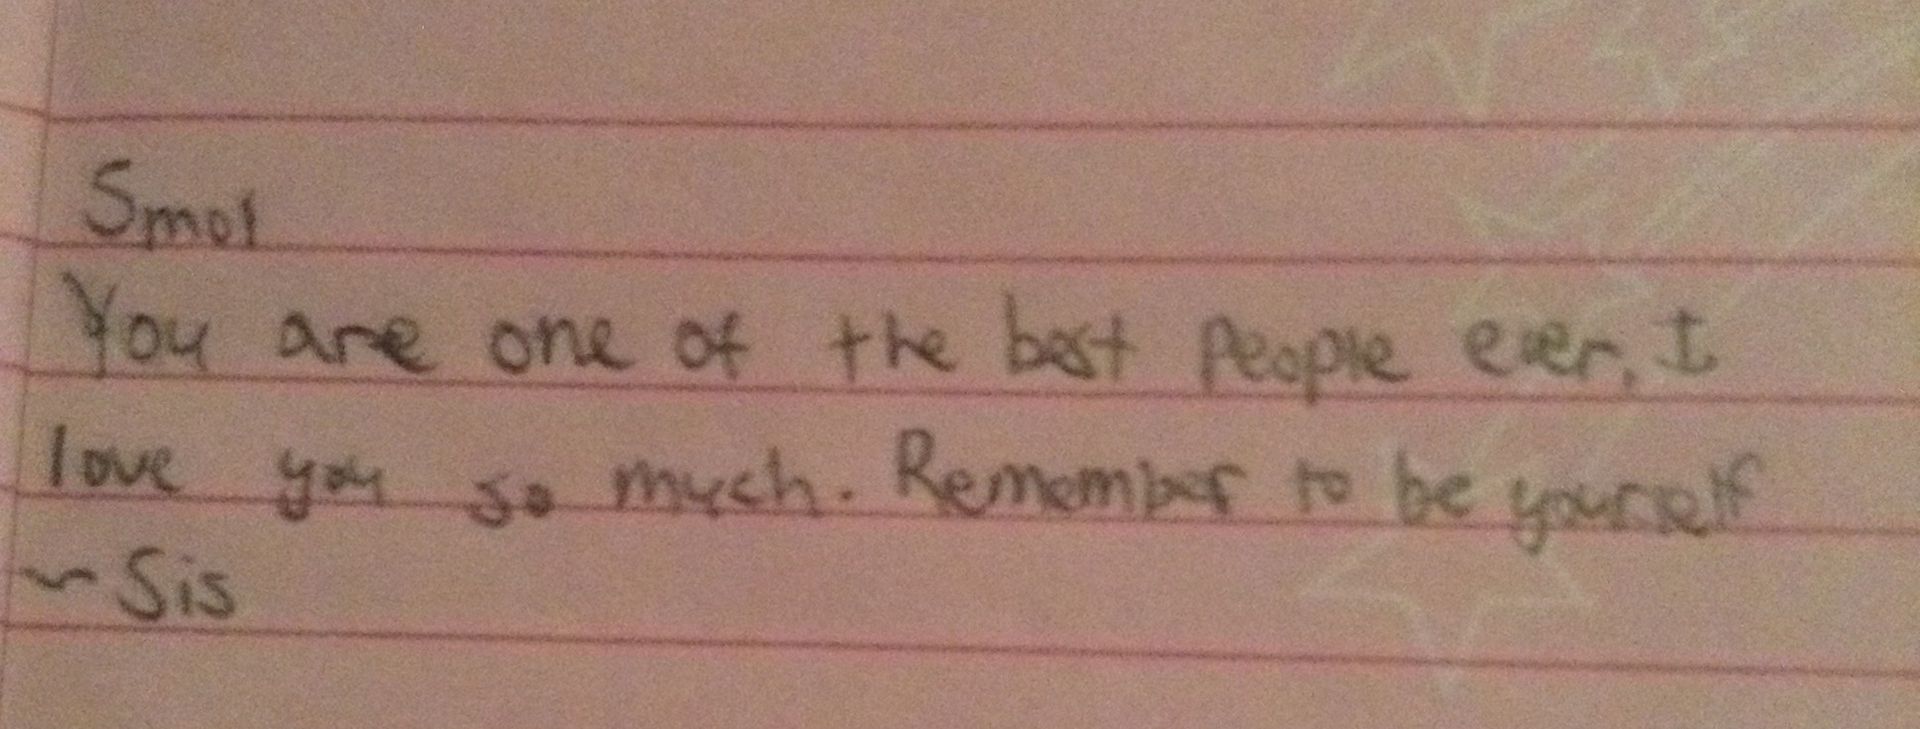 Smol
You are one of the best people ever, I
love you so much. Remember to be yourself
~ Sis